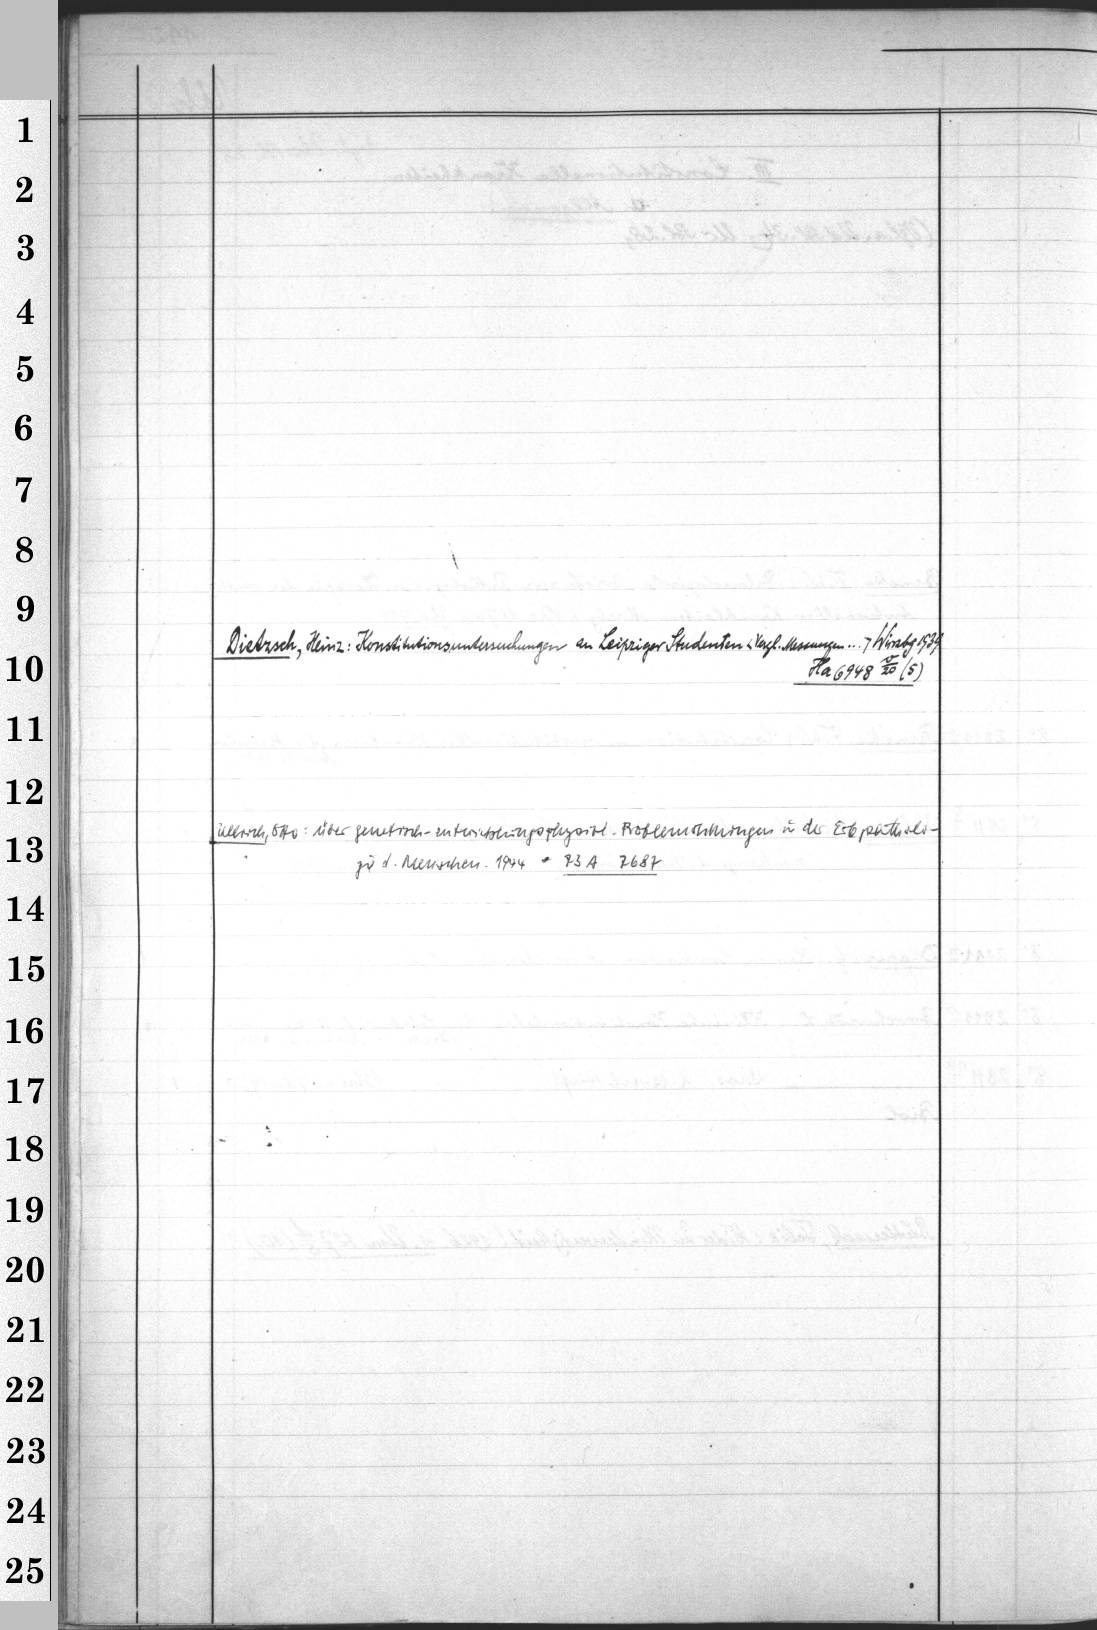 1
2
3
4
5
6
7
8
9
Dietzsch, Heinz: Konstitutionsuntersuchungen an Leipziger Studenten u. Vergl. Messungen... Würzbg 1939
10
Ha 6948 (5)
11
12
Otto: Über genetisch-entwicklungsphysiol. Problemstellungen in der Erbpatholo-
13
gie d. Menschen. 1944 23 A 2687
14
15
16
17
18
19
20
21
22
23
24
25